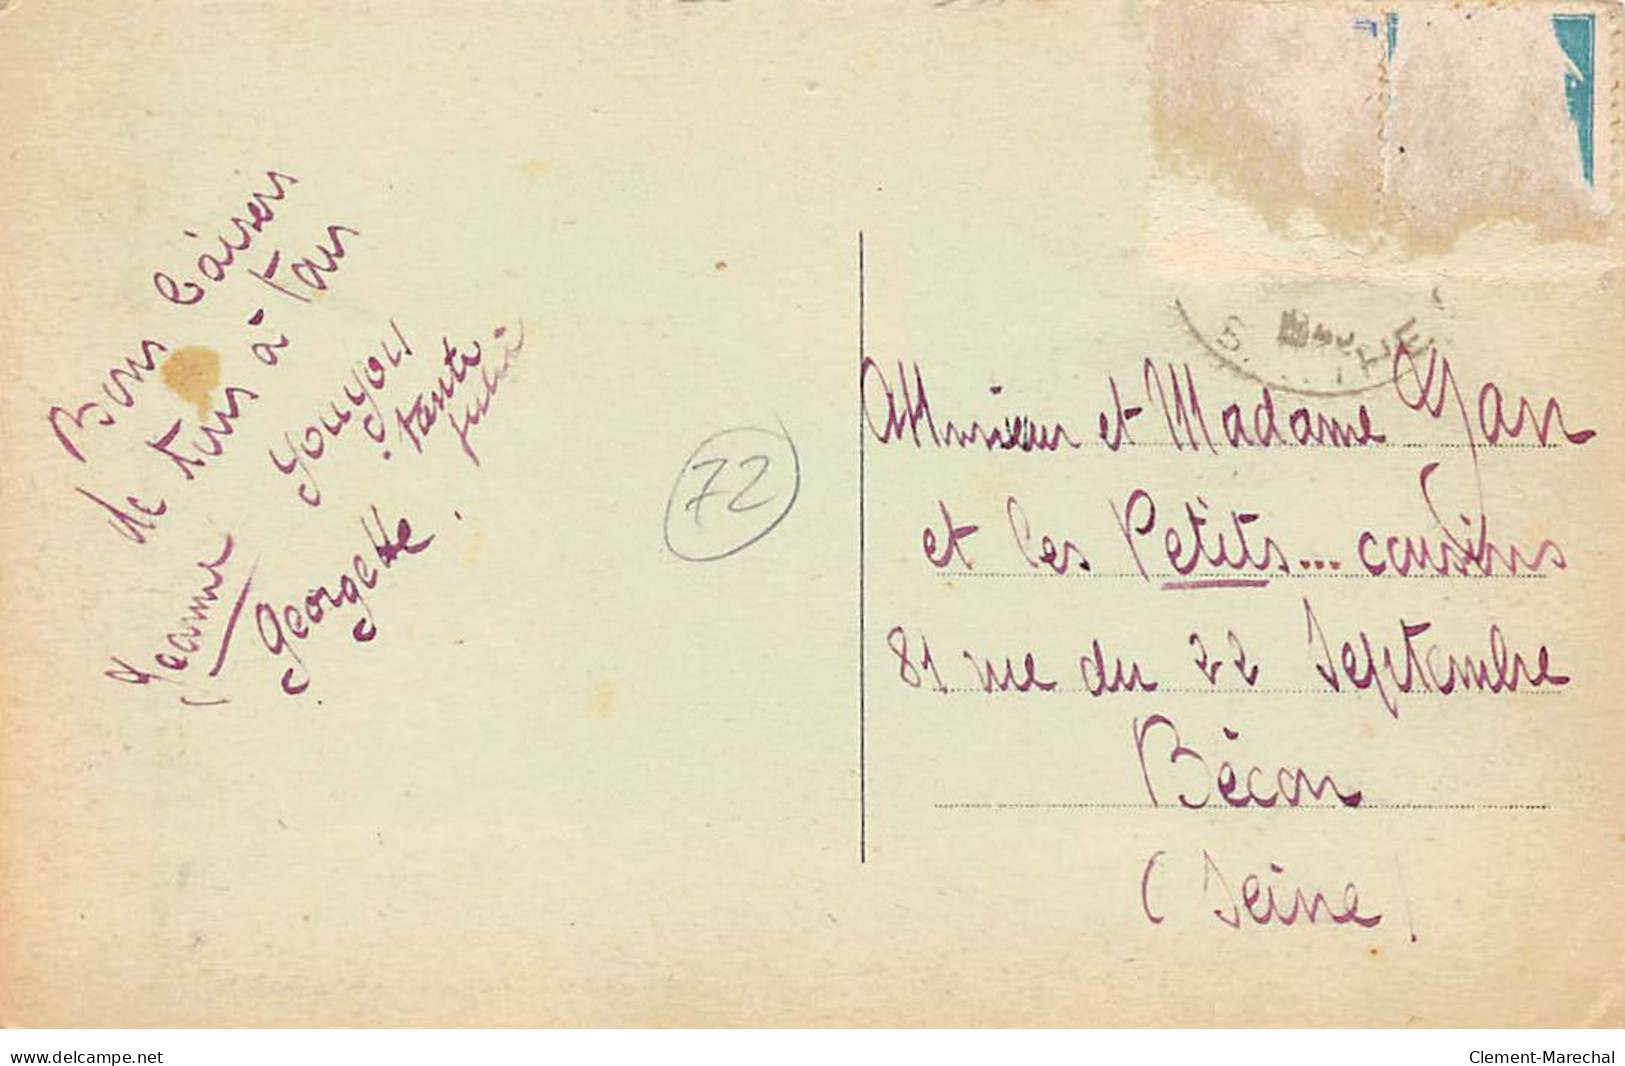 Bons baisers
de tous à tous
Youyou
tante
Julia
Jeanne
Georgette.
72
A Monsieur et Madame
et les Petits... cousins
81 rue du 22 Septembre
Bécon
(Seine)
delcampe.net
Clement-Marechal